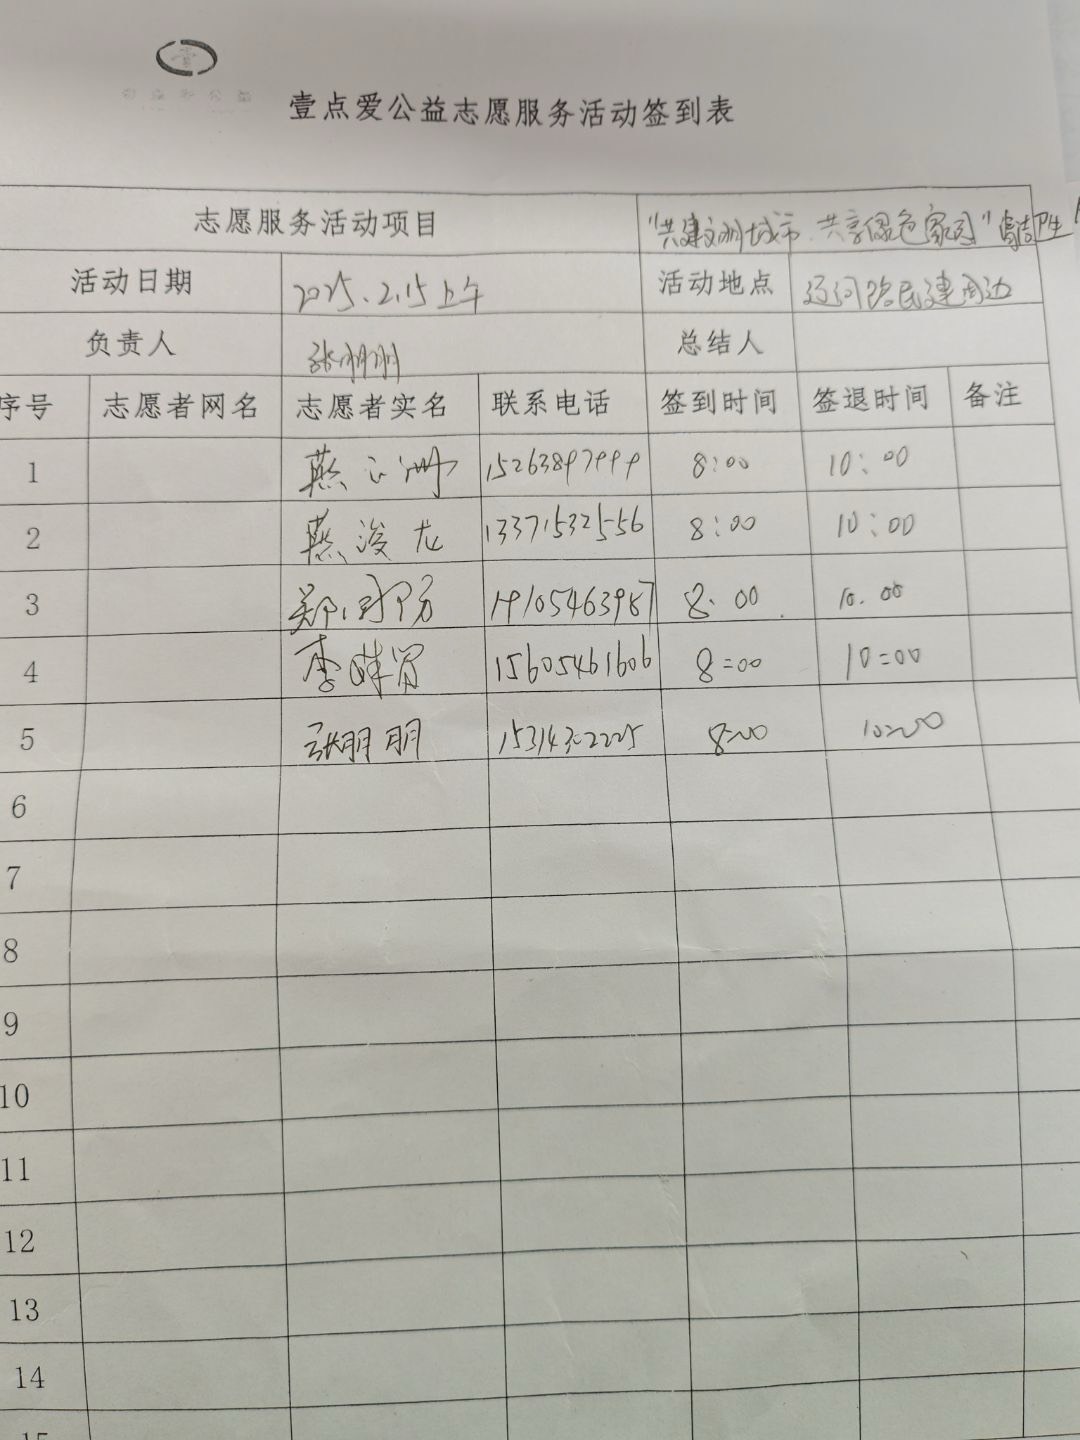 壹点爱公益志愿服务活动签到表
志愿服务活动项目 "共建文明城市 共享绿色家园"清洁卫生
活动日期 2025.2.15上午 活动地点 辽河路民建周边
负责人 张朋朋 总结人
序号 志愿者网名 志愿者实名 联系电话 签到时间 签退时间 备注
1 燕 15263897999 8:00 10:00
2 燕浚龙 13371532556 8:00 10:00
3 郑 19105463987 8.00 10.00
4 李 15605461606 8:00 10:00
5 张朋朋 15314322225 8:00 10:00
6
7
8
9
10
11
12
13
14
15